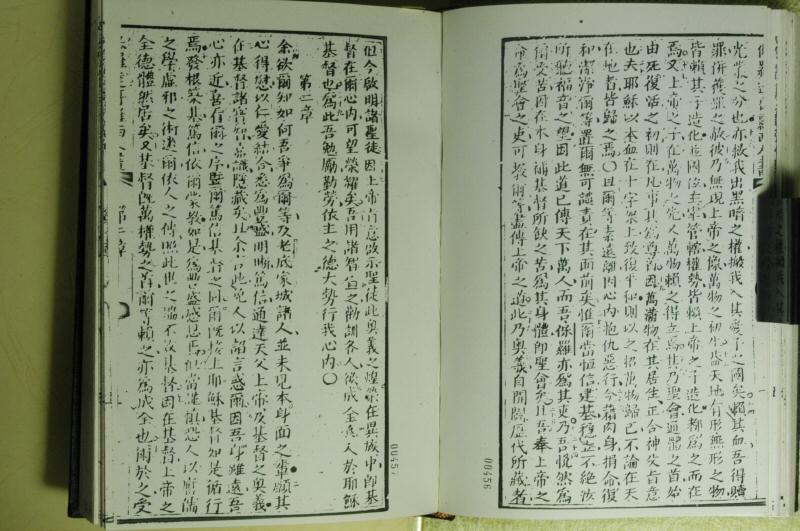 光業之分也亦拔我出黑暗之權搬我入其愛子之國矣賴其血吾得贖
罪併獲罪之赦彼乃無現上帝之像萬物之初生蓋天地有形無形之物
皆賴其子造化並國位主宰管轄權勢皆賴上帝之子造化都為之而在
焉又上帝之子在萬物之先人萬物賴之得立焉其乃聖會通體之首始
由死復活之初則在凡事其為尊首因萬滿物在其居生正合神父旨意
也夫耶穌以本血在十字架上致復平和則以之招萬物歸已不論在天
在地者皆歸之焉○且爾等素遠離因心内抱仇惡行今藉肉身捐命復
和潔淨爾等置爾無可譴責在其面前矣惟爾當恒信建基穩立不絶汝
所聽福音之望因此道已傳天下萬人而吾保羅亦為其吏乃吾悦然為
爾受苦因在本身補基督所缺之苦為其身體即聖會矣且吾奉上帝之
命為聖會之吏可教爾等盡傳上帝之道此乃奧義自開闢歷代所藏者
00456
但今啟明諸聖徒因上帝肯意啟示聖徒此奧義之煌榮在異城中即基
督在爾心内可望榮耀矣吾用諸智宣之勸訓各人欲成全衆人於耶穌
基督也為此吾勉厲勤勞依主之德大勢行我心内○
第二章
余欲爾知如何吾爭為爾等及老底家城諸人並未見本身面之輩願其
心得慰以仁愛結合悉為豐盛明晰篤信通達天父上帝及基督之奧義
在基督諸寶智嘉識隱藏矣且余言此免人以諂言惑爾因吾身雖遠吾
心亦近喜有爾之序暨爾篤信基督之固爾既接上耶穌基督如是循行
焉發根築基篤信依爾蒙教如是為豐盛感恩焉但當謹慎恐人以磨儒
之學虛邪之術迷爾依人之傳照此世之端不依基督因在基督上帝之
全德體然居矣又基督既萬權勢之首爾等賴之亦為成全也爾於之受
00457